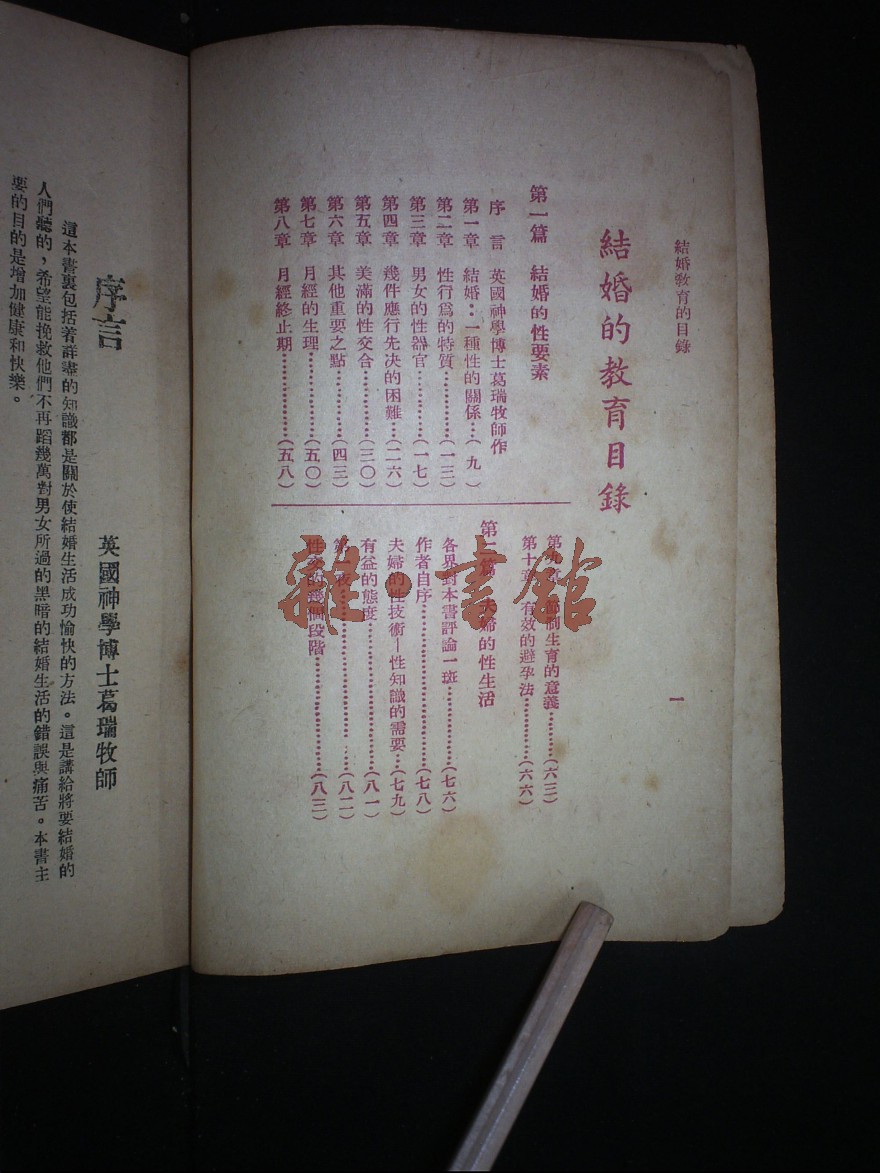 結婚教育的目錄
結婚的教育目錄
第一篇 結婚的性要素
序 言 英國神學博士葛瑞牧師作
第一章 結婚：一種性的關係…（九）
第二章 性行爲的特質…………（一三）
第三章 男女的性器官…………（一七）
第四章 幾件應行先决的困難…（二六）
第五章 美滿的性交合…………（三〇）
第六章 其他重要之點…………（四三）
第七章 月經的生理……………（五〇）
第八章 月經終止期……………（五八）
第九章 節制生育的意義………（六三）
第十章 有效的避孕法…………（六六）
第二篇 夫婦的性生活
各界對本書評論一斑…………（七六）
作者自序………………………（七八）
夫婦的性技術—性知識的需要…（七九）
有益的態度……………………（八一）
第一夜…………………………（八二）
性交的幾個段階………………（八三）
一
序言
英國神學博士葛瑞牧師
這本書裏包括着詳盡的知識都是關於使結婚生活成功愉快的方法。這是講給將要結婚的
人們聽的，希望能挽救他們不再蹈幾萬對男女所過的黑暗的結婚生活的錯誤與痛苦。本書主
要的目的是增加健康和快樂。
雜·書館